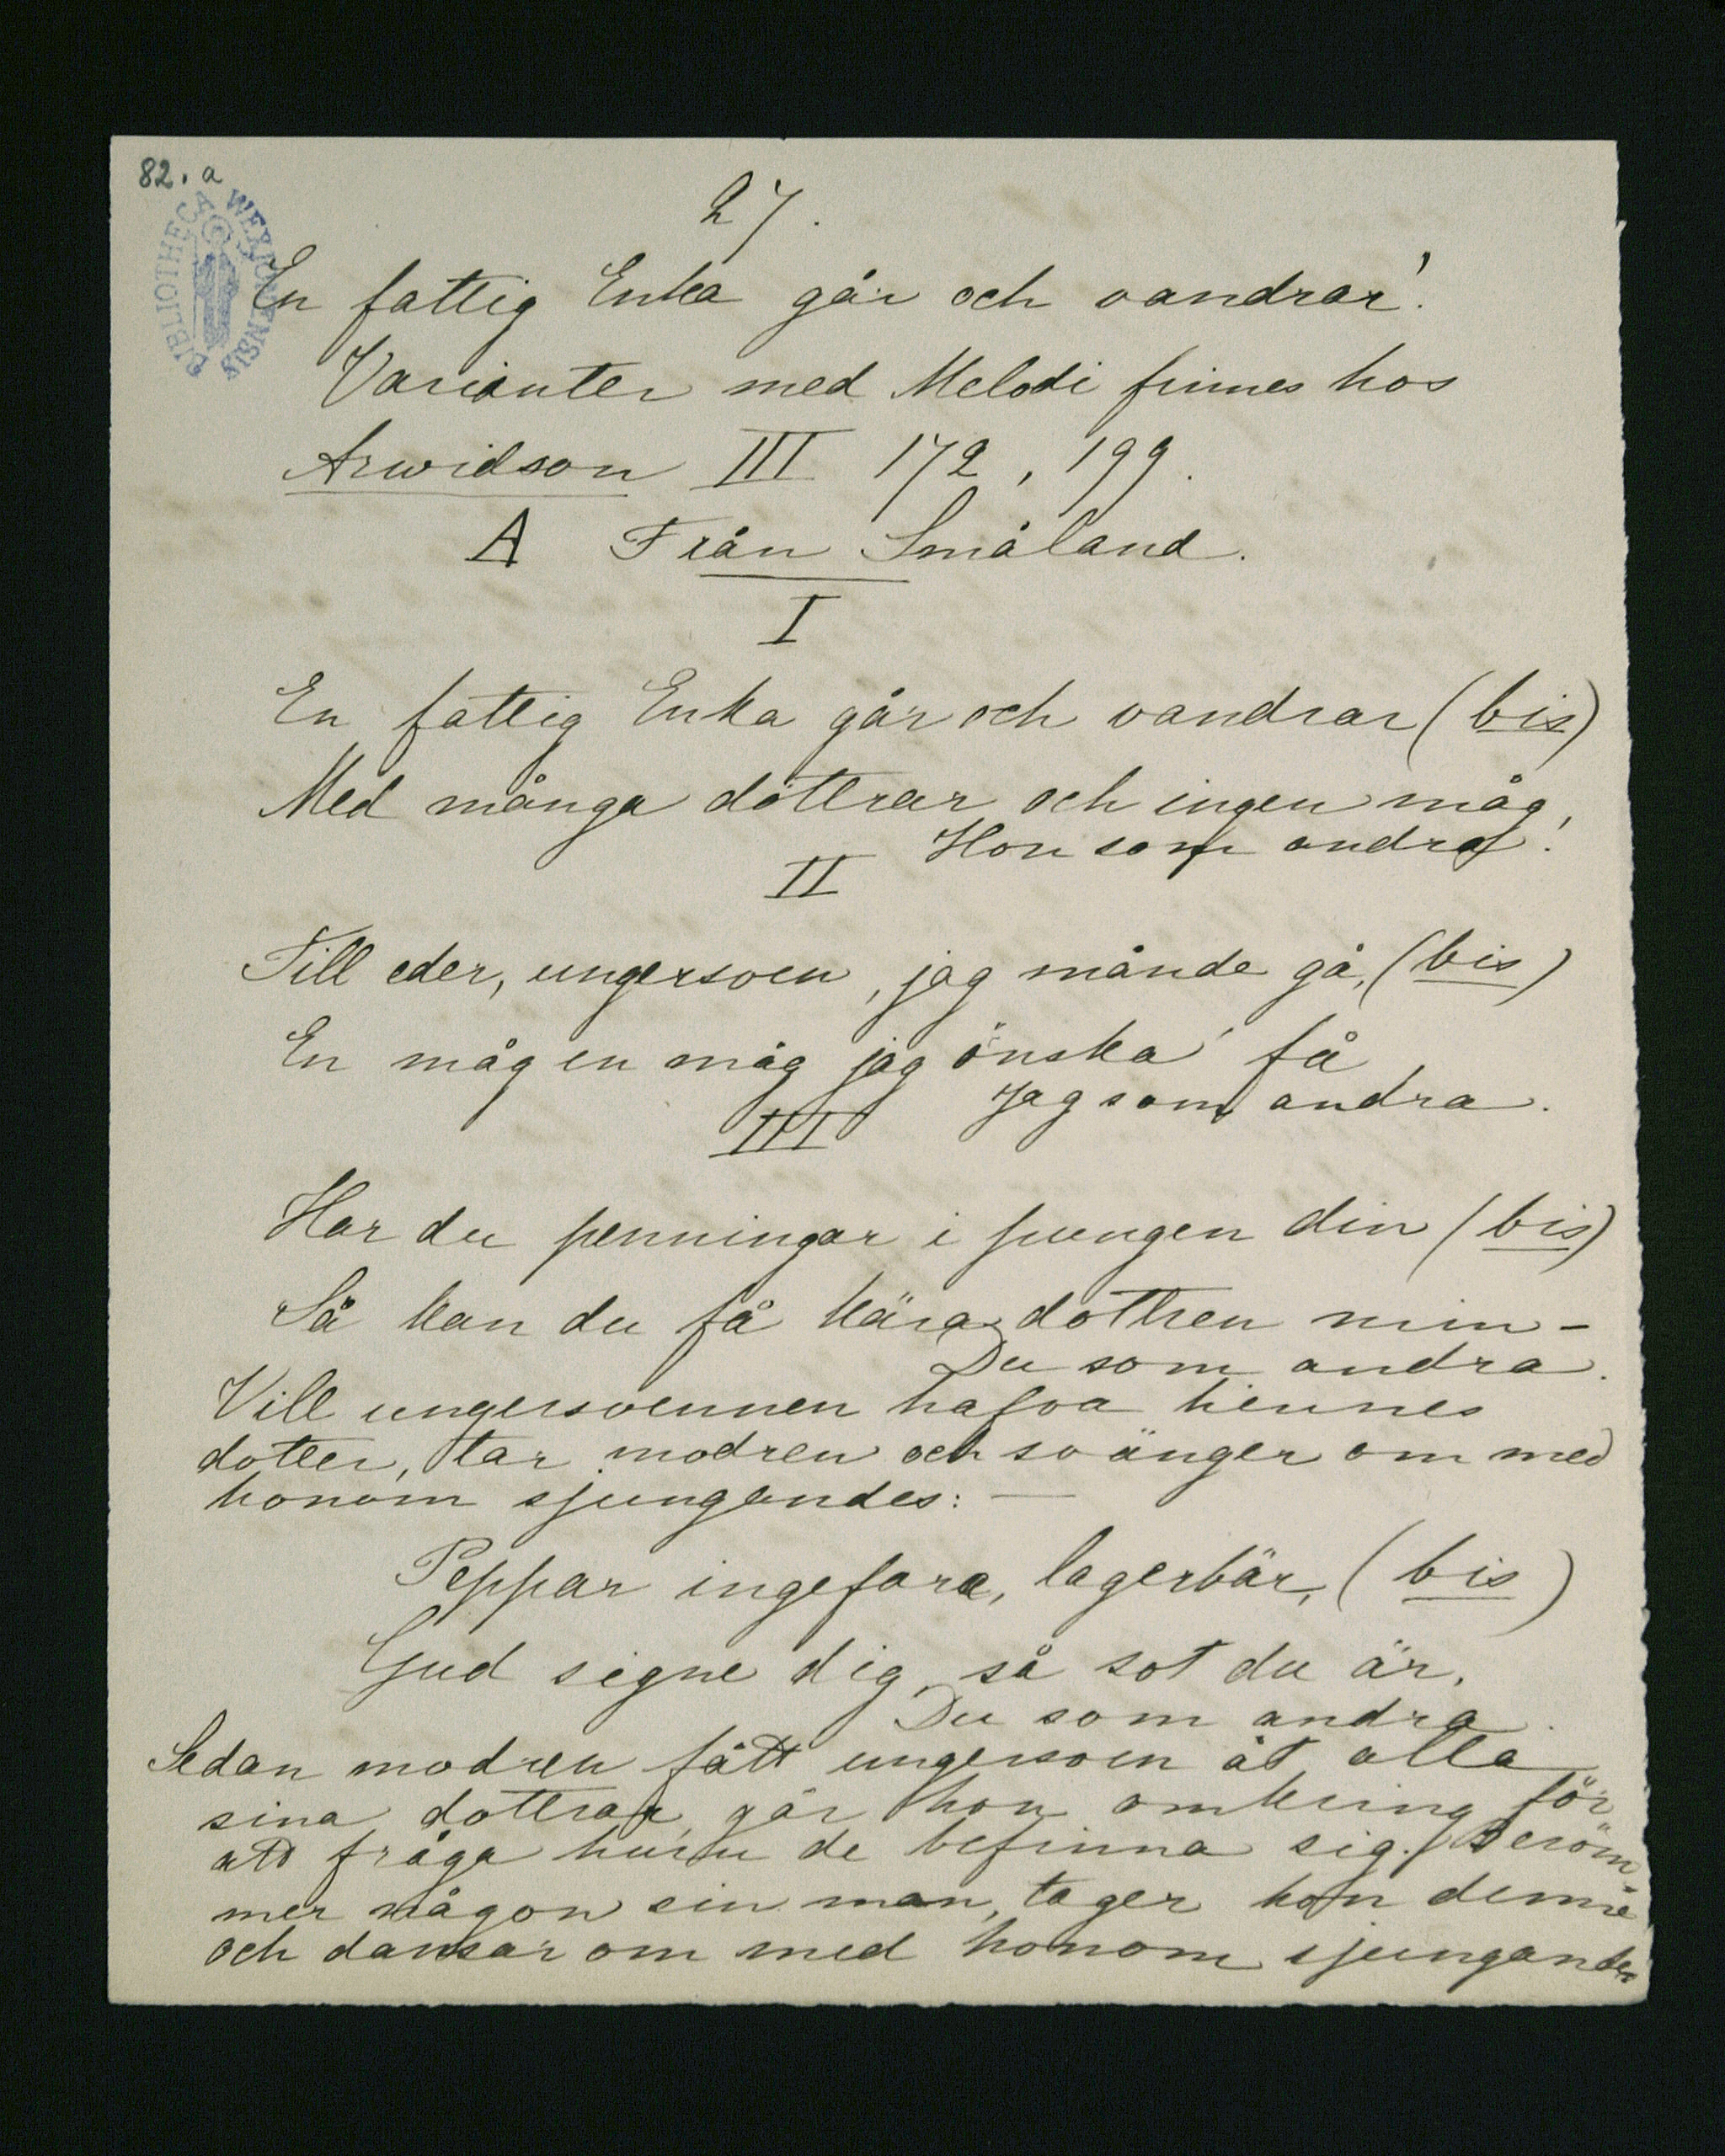 82. a
BIBLIOTHECA WEXIONENSIS
27.
En fattig Enka går och vandrar!
Varianter med Melodi finnes hos
Arwidson III 172, 199.
A Från Småland.
I
En fattig Enka går och vandrar (bis)
Med många döttrar och ingen måg,
Hon som andra!
II
Till eder, ungersven, jag månde gå, (bis)
En måg en måg jag önska' få
Jag som andra.
III
Har du penningar i pungen din (bis)
Så kan du få kära dottren min -
Du som andra.
Vill ungersvennen hafva hennes
dotter, tar modren och svänger om med
honom sjungandes: —
Peppar ingefara, lagerbär, (bis)
Gud signe dig, så sot du är,
Du som andra.
Sedan modren fått ungersven åt alla
sina dottrar, går hon omkring för
att fråga huru de befinna sig. Beröm-
mer någon sin man, tager hon denne
och dansar om med honom sjungandes